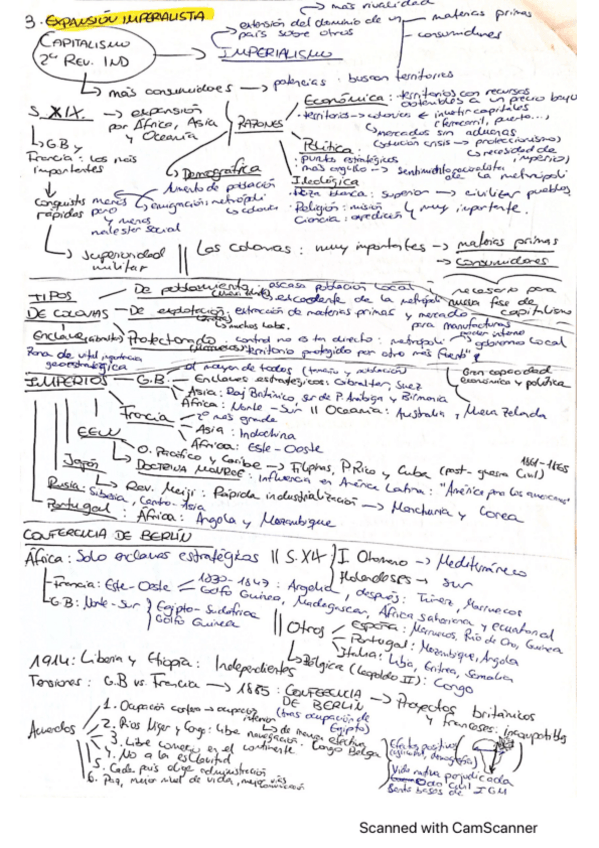 → más rivalidad
3. EXPANSIÓN IMPERIALISTA
extensión del dominio de un país sobre otros
materias primas
consumidores
CAPITALISMO
2ª REV. IND
IMPERIALISMO
→ más consumidores → potencias: buscan territorios
S. XIX. → expansión por África, Asia y Oceanía
RAZONES
Económica: territorios con recursos
obtenibles a un precio bajo
territorios → colonias invertir capitales
(ferrocarril, puerto...)
mercados sin aduanas
(solución crisis → proteccionismo)
GB y Francia: los más importantes
Política
puntos estratégicos
más orgullo → sentimiento nacionalista
de la metrópoli
Demográfica
Aumento de población
emigración: metrópoli → colonia
Ideológica
Raza blanca: superior → civilizar pueblos
Religión: misión
Ciencia: expedición y muy importante.
Conquistas menos rápidas pero
y menos malestar social
Superioridad militar
Las colonias: muy importantes → materias primas
→ consumidores
necesario para nueva fase de capitalismo
TIPOS DE COLONIAS
De poblamiento escasa población local
excedente de la metrópoli
De explotación: extracción de materias primas y mercado para manufacturas
muchos habs.
Enclave Protectorado control no es tan directo: metrópoli gobierno local
territorio protegido por otro más fuerte
Zona de vital importancia geoestratégica
Gran capacidad económica y política
IMPERIOS
G.B. el mayor de todos (tamaño y población)
Enclaves estratégicos: Gibraltar, Suez
Asia: Raj Británico, sur de P. Arábiga y Birmania
África: Norte - Sur || Oceanía: Australia y Nueva Zelanda
Francia 2º más grande
Asia: Indochina
África: Este - Oeste
EEUU
O. Pacífico y Caribe → Filipinas, P. Rico y Cuba (post-guerra Civil)
1861-1865
DOCTRINA MONROE: Influencia en América Latina: "América para los americanos"
Japón
Rev. Meiji: Rápida industrialización → Manchuria y Corea
Rusia: Siberia, Centro-Asia
Portugal: África: Angola y Mozambique
CONFERENCIA DE BERLÍN
África: Solo enclaves estratégicos || S. XIX
I. Otomano → Mediterráneo
Holandeses → sur
Francia: Este - Oeste 1830-1847: Argelia, después: Túnez, Marruecos
Golfo Guinea, Madagascar, África sahariana y ecuatorial
G.B: Norte - Sur Egipto - Sudáfrica
Golfo Guinea
Otros
España: Marruecos, Río de Oro, Guinea
Portugal: Mozambique, Angola
Italia: Libia, Eritrea, Somalia
Bélgica (Leopoldo II): Congo
1914: Liberia y Etiopía: Independientes
Tensiones: G.B vs. Francia → 1885: CONFERENCIA DE BERLÍN
(tras ocupación de Egipto)
→ Proyectos británicos y franceses: incompatibles
Acuerdos
1. Ocupación costera → ocupación interior
de manera efectiva
2. Ríos Níger y Congo: libre navegación.
3. Libre comercio en el continente Congo Belga
4. No a la esclavitud
5. Cada país elige administración
6. Paz, mejor nivel de vida,
Efectos positivos
Vida nativa perjudicada
Sienta bases de IGM
Scanned with CamScanner